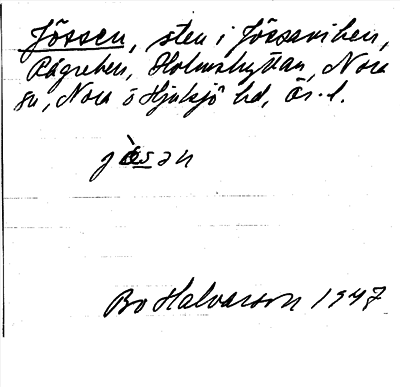 Jössen, sten i Jössviken,
Rågreken, Holmshyttan, Nora
sn, Nora o Hjulsjö hd, Ör. l.
jössən
Bo Halvarson 1947